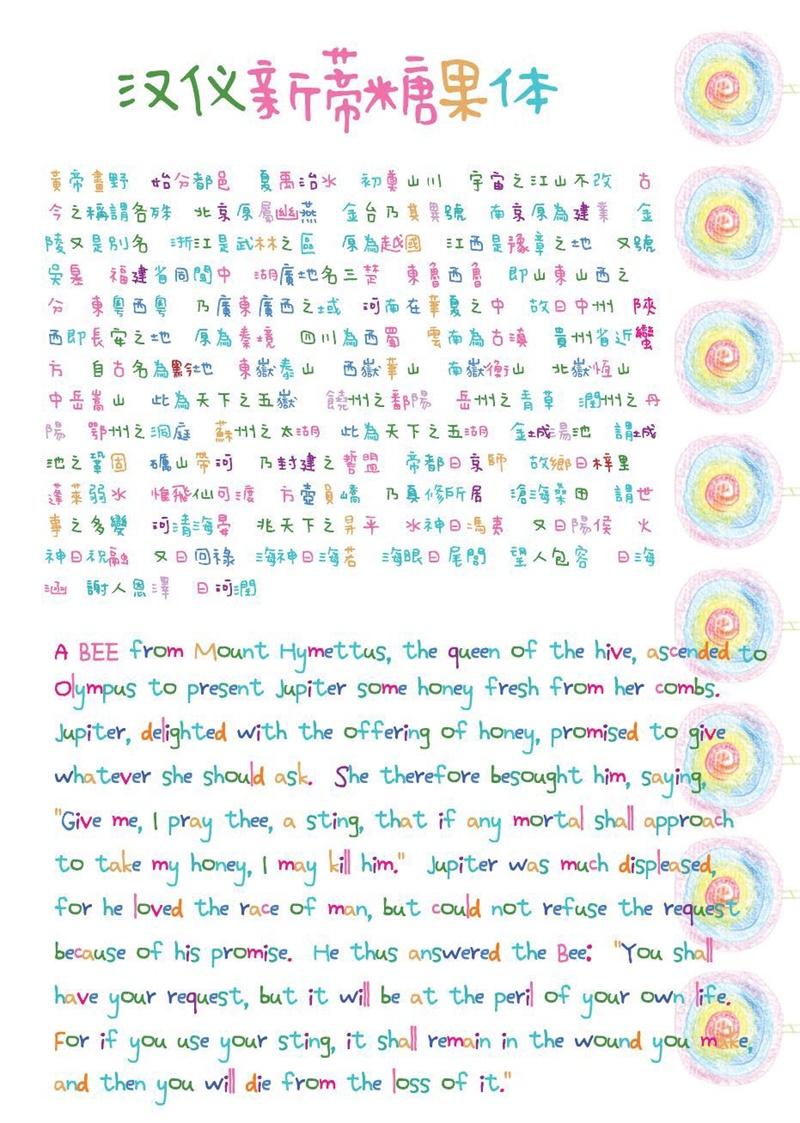 汉仪新蒂糖果体
黄帝畫野 始分都邑 夏禹治水 初奠山川 宇宙之江山不改 古
今之稱謂各殊 北京原屬幽燕 金台乃其異號 南京原為建業 金
陵又是別名 浙江是武林之區 原為越國 江西是豫章之地 又號
吳皋 福建省同閩中 湖廣地名三楚 東魯西魯 即山東山西之
分 東粵西粵 乃廣東廣西之域 河南在華夏之中 故日中州 陝
西即長安之地 原為秦境 四川為西蜀 雲南為古滇 貴州省近蠻
方 自古名為黔地 東嶽泰山 西嶽華山 南嶽衡山 北嶽恆山
中岳嵩山 此為天下之五嶽 饒州之鄱陽 岳州之青草 潤州之丹
陽 鄂州之洞庭 蘇州之太湖 此為天下之五湖 金城湯池 謂城
池之鞏固 礪山帶河 乃封建之誓盟 帝都日京師 故鄉日梓里
蓬萊弱水 惟飛仙可渡 方壺員嶠 乃真修所居 滄海桑田 謂世
事之多變 河清海晏 兆天下之昇平 水神日馮夷 又日陽侯 火
神日祝融 又日回祿 海神日海若 海眼日尾閭 望人包容 日海
涵 謝人恩澤 日河潤
A BEE from Mount Hymettus, the queen of the hive, ascended to
Olympus to present Jupiter some honey fresh from her combs.
Jupiter, delighted with the offering of honey, promised to give
whatever she should ask. She therefore besought him, saying,
"Give me, I pray thee, a sting, that if any mortal shall approach
to take my honey, I may kill him." Jupiter was much displeased,
for he loved the race of man, but could not refuse the request
because of his promise. He thus answered the Bee: "You shall
have your request, but it will be at the peril of your own life.
For if you use your sting, it shall remain in the wound you make,
and then you will die from the loss of it."